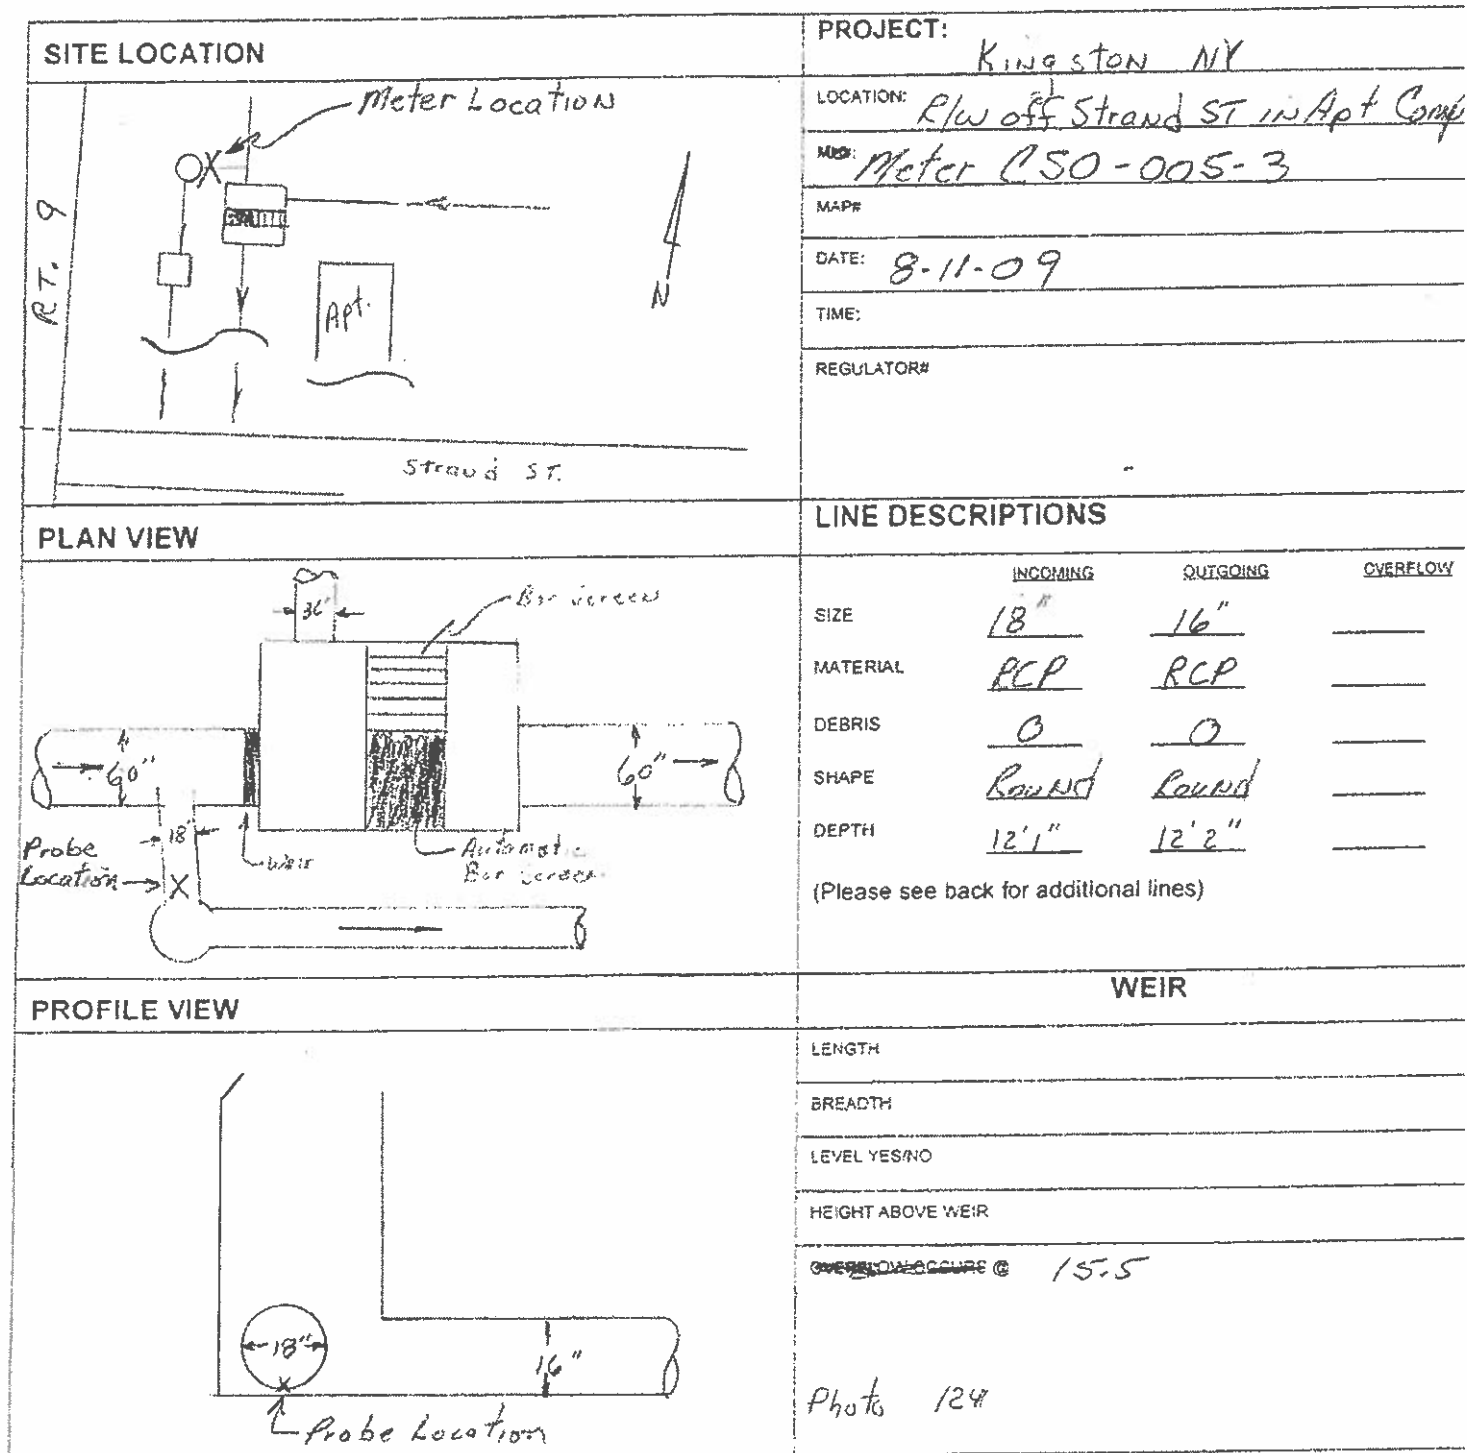 SITE LOCATION
Meter Location
RT. 9
N
Apt.
Strand ST.
PROJECT: Kingston NY
LOCATION: R/W off Strand ST in Apt Comp
Meter CSO-005-3
MAP#
DATE: 8-11-09
TIME:
REGULATOR#
PLAN VIEW
36"
Bar Screen
60"
60"
18"
Probe
Location
Weir
Automatic
Bar Screen
LINE DESCRIPTIONS
INCOMING OUTGOING OVERFLOW
SIZE 18" 16"
MATERIAL RCP RCP
DEBRIS 0 0
SHAPE Round Round
DEPTH 12'1" 12'2"
(Please see back for additional lines)
PROFILE VIEW
18"
16"
Probe Location
WEIR
LENGTH
BREADTH
LEVEL YES/NO
HEIGHT ABOVE WEIR
OVERFLOW OCCURS @ 15.5
Photo